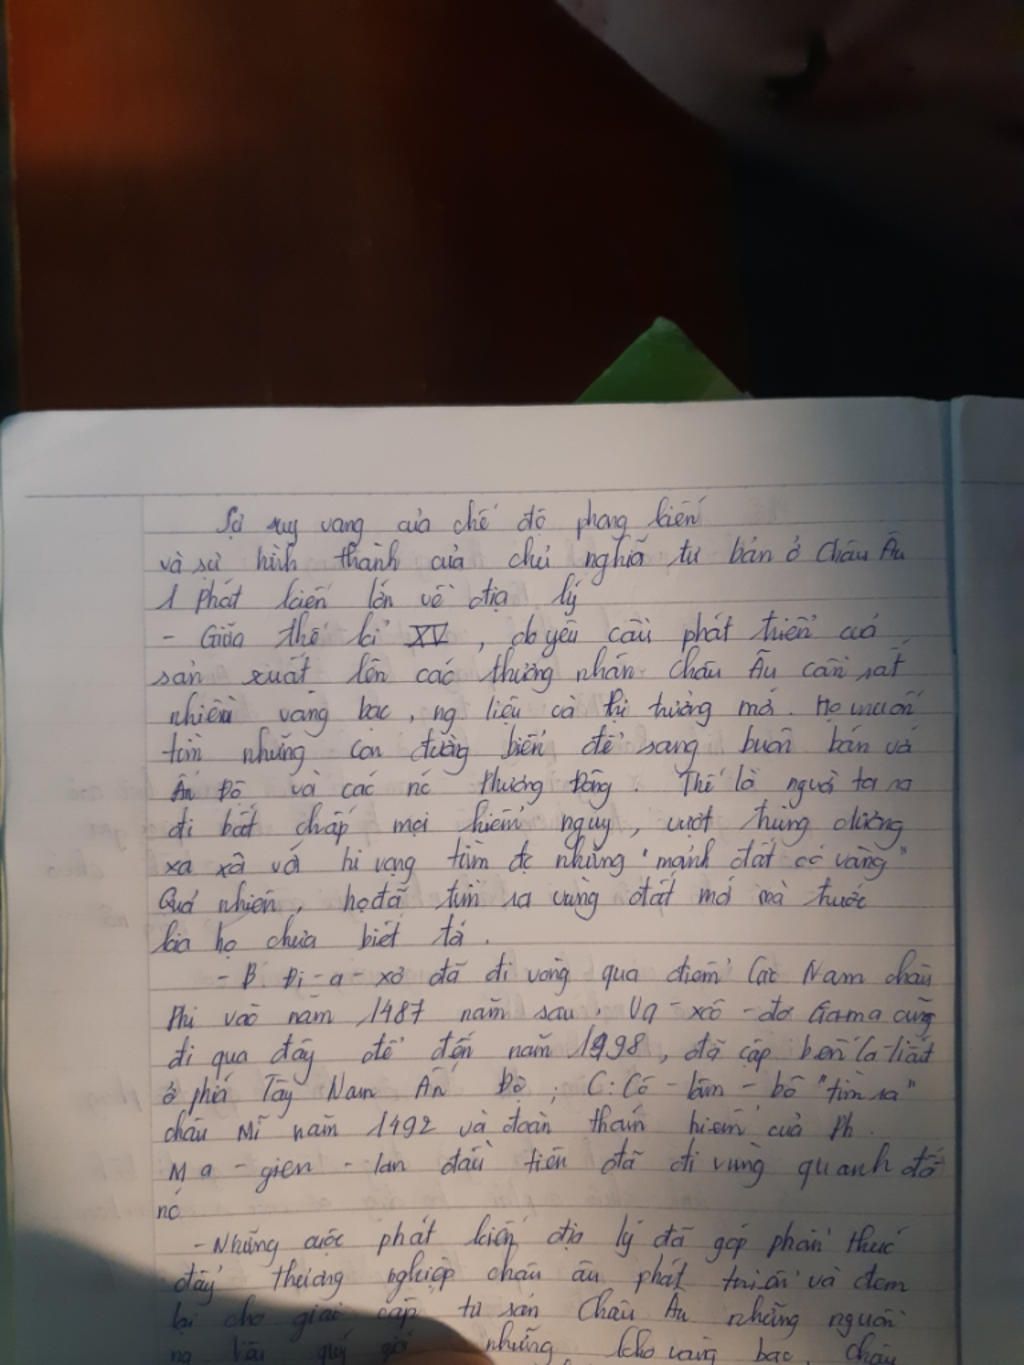 Sự suy vang của chế độ phong kiến
và sự hình thành của chủ nghĩa tư bản ở Châu Âu
1 Phát kiến lớn về địa lý
- Giữa thế kỉ XV, do yêu cầu phát triển của
sản xuất lên các thương nhân châu Âu cần rất
nhiều vàng bạc, ng liệu cà thị trường mới. Họ muốn
tìm những con đường biển để sang buôn bán với
Ấn Độ và các nc Phương Đông. Thế là người ta ra
đi bất chấp mọi hiểm nguy, vượt trùng dương
xa xôi với hi vọng tìm đc những "mảnh đất có vàng"
Quả nhiên, họ đã tìm ra vùng đất mới mà trước
kia họ chưa biết tới.
- B. Đi-a-xơ đã đi vòng qua điểm Cực Nam châu
Phi vào năm 1487 năm sau, Va-xcô-đơ Gama cũng
đi qua đây để đến năm 1998, đã cập bến Ca-li-cút
ở phía Tây Nam Ấn Độ; C: Cô-lôm-bô "tìm ra"
châu Mĩ năm 1492 và đoàn thám hiểm của Ph.
Ma-gien-lan đầu tiên đã đi vùng quanh đố
nó
- Những cuộc phát kiến địa lý đã góp phần thúc
đẩy thương nghiệp châu âu phát triển và đem
lại cho giai cấp tư sản Châu Âu những nguồn
ng liệu quý giá những kho vàng bạc, châu